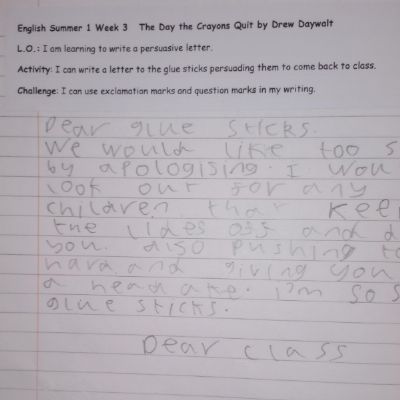 English Summer 1 Week 3 The Day the Crayons Quit by Drew Daywalt
L.O.: I am learning to write a persuasive letter.
Activity: I can write a letter to the glue sticks persuading them to come back to class.
Challenge: I can use exclamation marks and question marks in my writing.
Dear glue sticks.
We would like too s
by apologising. I wou
look out for any
children that kee
the lides off and d
you. also pushing to
hard and giving you
a head ake. I'm so s
glue sticks.
Dear class